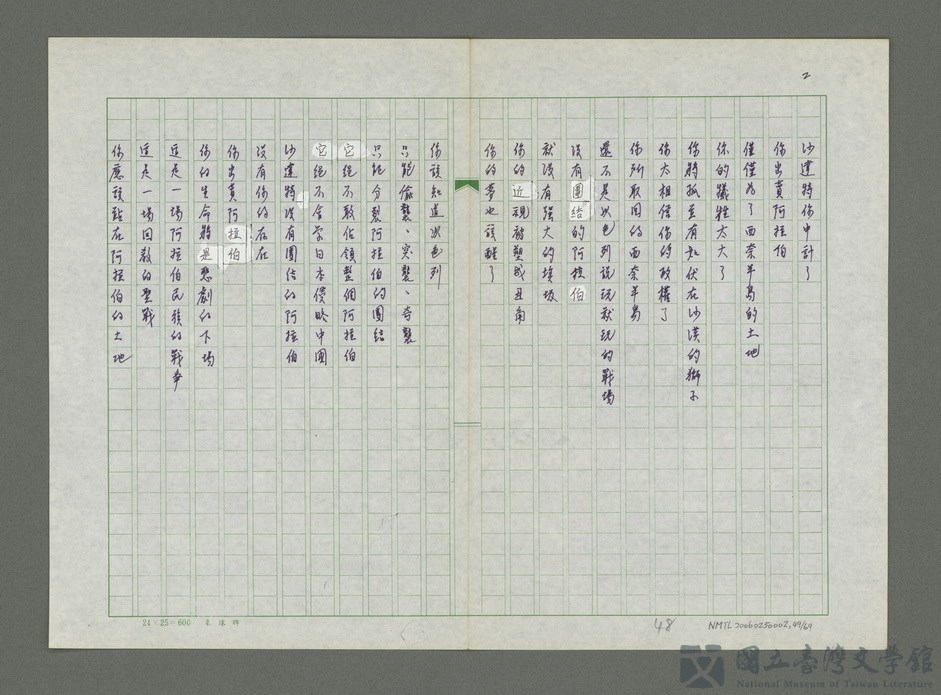 2
沙達特你中計了
你出賣阿拉伯
僅僅為了西奈半島的土地
你的犧牲太大了
你將孤立有如伏在沙漠的獅子
你太相信你的政權了
你所取回的西奈半島
還不是以色列說玩就玩的戰場
沒有團結的阿拉伯
就沒有強大的埃及
你的近視被塑成丑角
你的夢也該醒了
你該知道以色列
只能偷襲、突襲、奇襲
只能分裂阿拉伯的團結
它絕不敢佔領整個阿拉伯
它絕不會學日本侵略中國
沙達特沒有團結的阿拉伯
沒有你的存在
你出賣阿拉伯
你的生命將是悲劇的下場
這是一場阿拉伯民族的戰爭
這是一場回教的聖戰
你應該站在阿拉伯的土地
24×25=600
48
NMTL20060256002,49/69
國立臺灣文學館
National Museum of Taiwan Literature